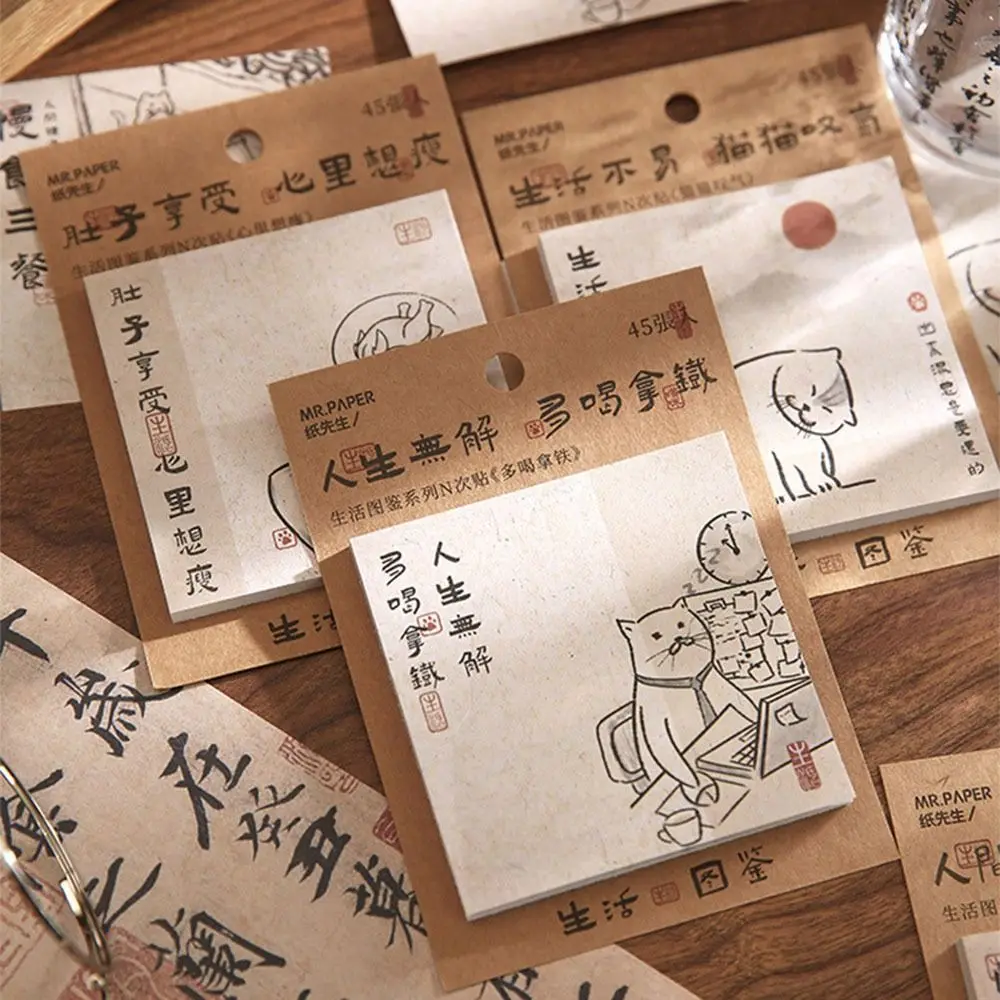 慢
食
三
餐
MR.PAPER
纸先生/
45張
肚子享受 心里想瘦
生活图鉴系列N次贴《心里想瘦》
肚子享受
心里想瘦
生活
MR.PAPER
纸先生/
45張
生活不易 猫猫叹气
生活图鉴系列N次贴《猫猫叹气》
生活
图鉴
MR.PAPER
纸先生/
45張
人生無解 多喝拿鐵
生活图鉴系列N次贴《多喝拿铁》
人生無解
多喝拿鐵
生活 图鉴
歲在癸丑暮
MR.PAPER
纸先生/
人間
生活图